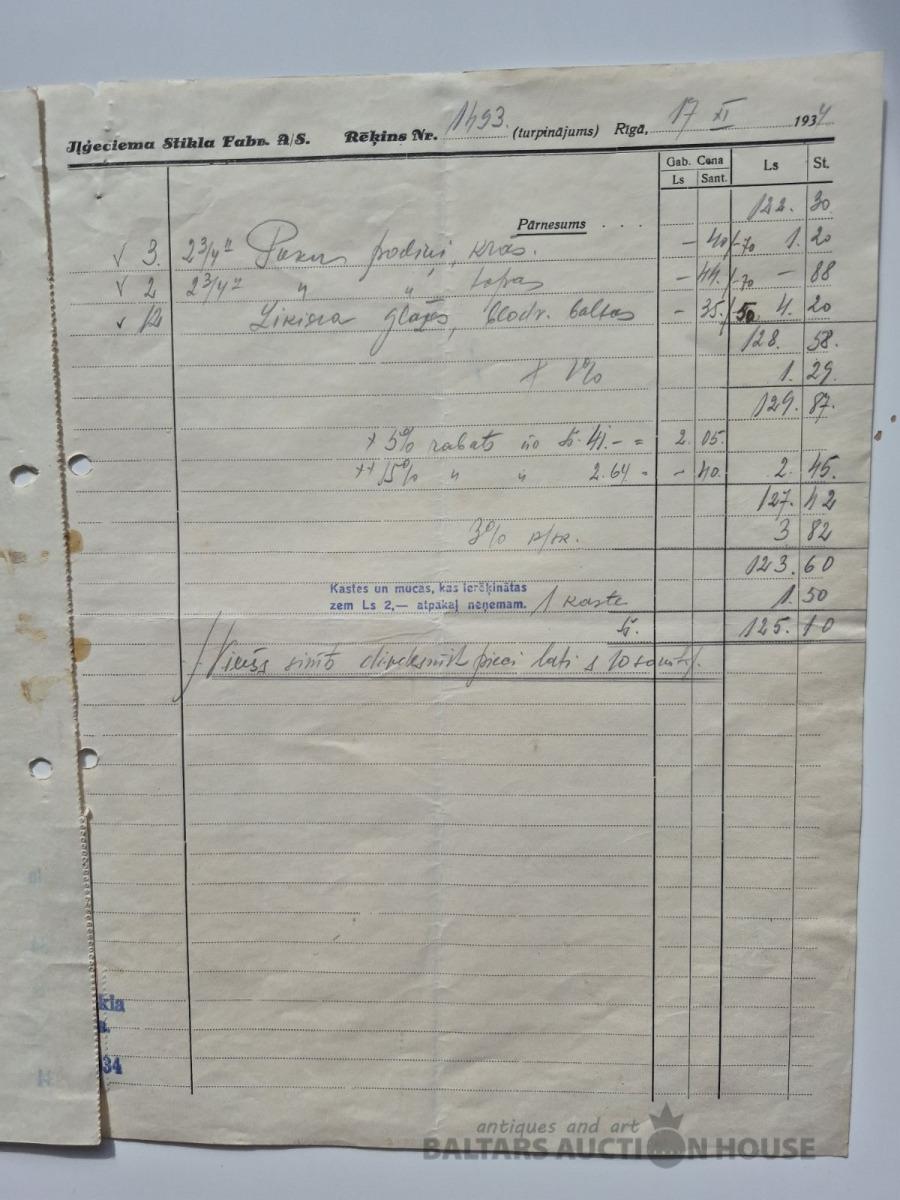 Iļģeciema Stikla Fabr. A/S. Rēķins Nr. 1493. (turpinājums) Rīgā, 17 XI 1934
Gab. Cena Ls St.
Ls Sant.
Pārnesums . . . . 122. 30
√ 3. 2 3/4" podiņi, kras. - 40 /-70 1. 20
√ 2 2 3/4" " " - 44. /-70 - 88
√ 12 Liķiera glāzes, baltas - 35. /-50 4. 20
128. 58.
+ 1% 1. 29.
129. 87.
+ 5% rabats no Ls. 41.- = 2. 05.
++ 15% " " 2.64 = - 40. 2. 45.
127. 42
3% 3 82
123. 60
Kastes un mucas, kas ierēķinātas
zem Ls 2,— atpakaļ neņemam. 1 kaste 1. 50
Ls. 125. 10
/Viens simts divdesmit pieci lati 10 santīmi/.
kla
34
antiques and art
BALTARS AUCTION HOUSE